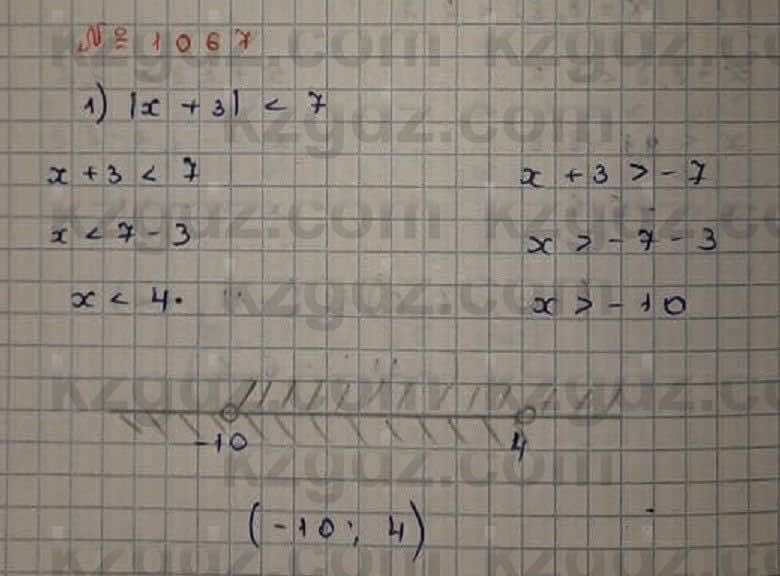 № 1067
1) |x + 3| < 7
x + 3 < 7    x + 3 > - 7
x < 7 - 3    x > - 7 - 3
x < 4.    x > - 10
-10    4
(-10; 4)
kzguz.com